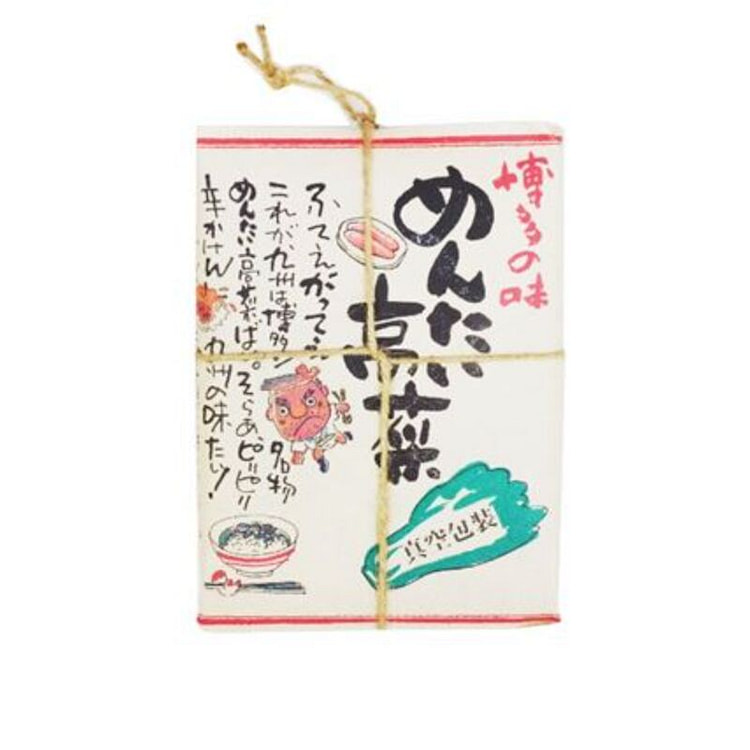 博多の味
めんたい
高菜
真空包装
ふてえがってえ
これが、九州は博多ン名物
めんたい高菜ばい。そらあ、ピリピリ
辛かけんに 九州の味たい!